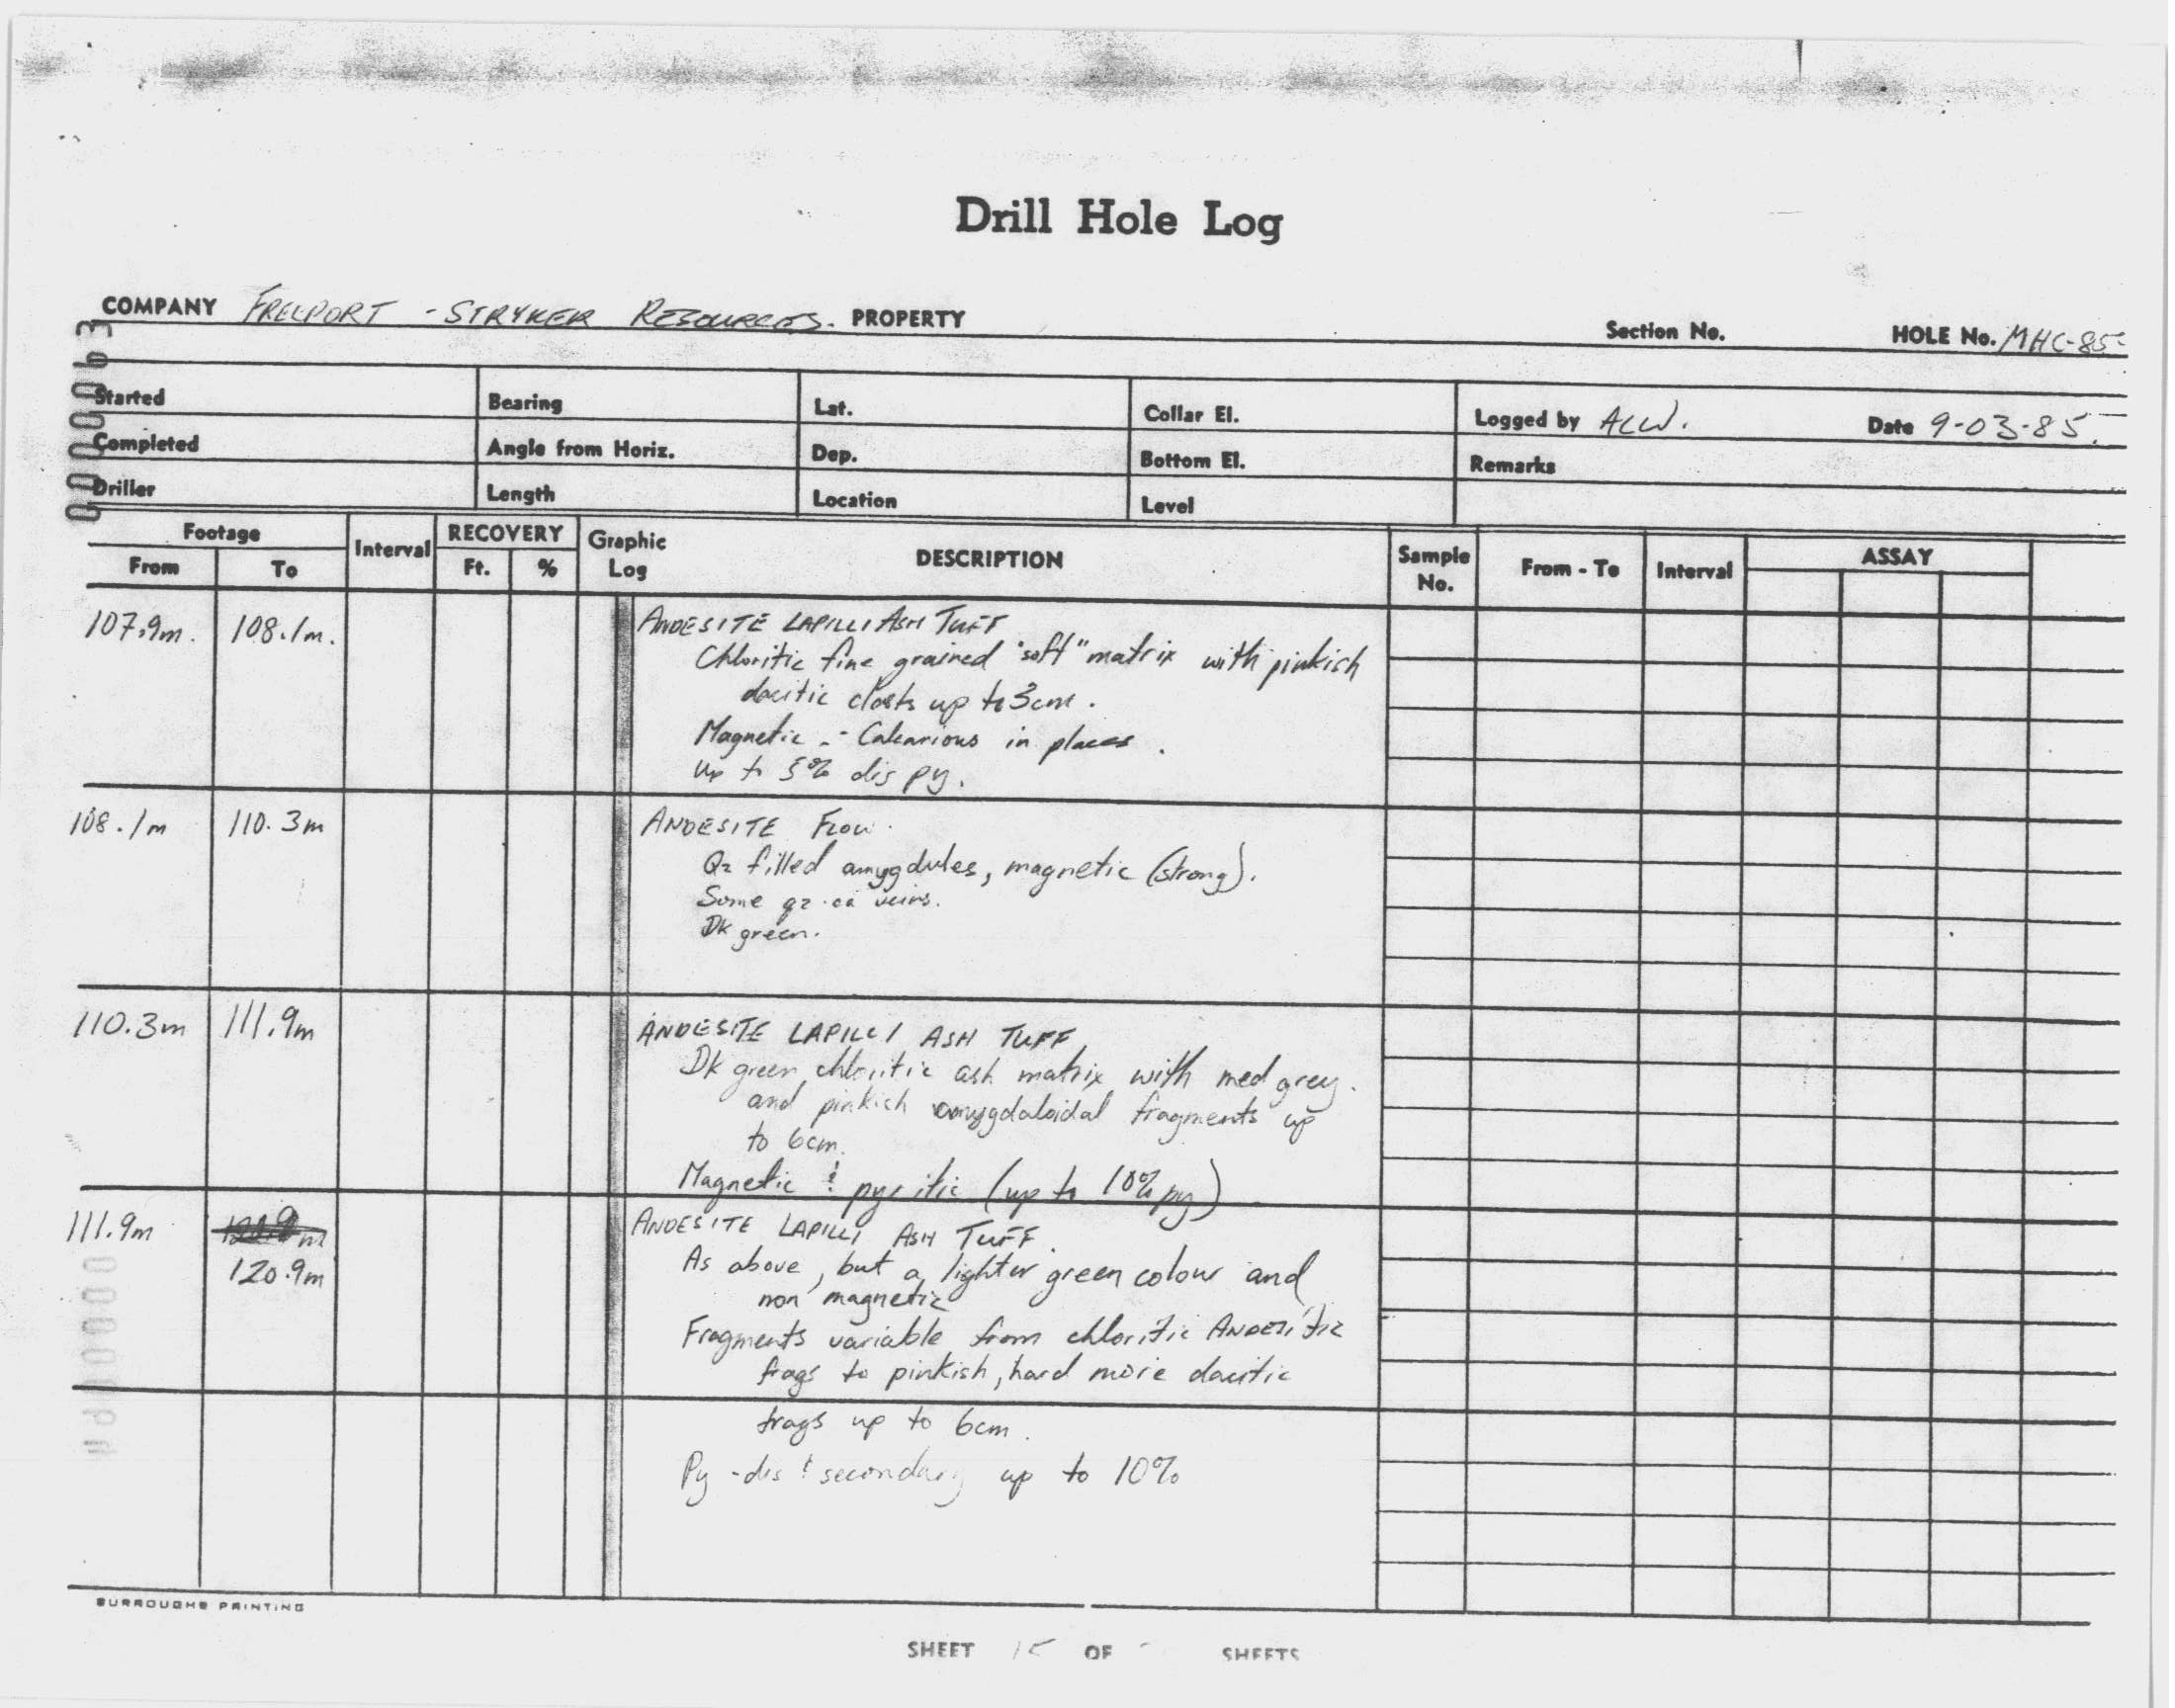 Drill Hole Log
COMPANY FREEPORT - STRYKER RESOURCES. PROPERTY Section No. HOLE No. MHC-85-
0000063
Started Bearing Lat. Collar El. Logged by ACW. Date 9-03-85.
Completed Angle from Horiz. Dep. Bottom El. Remarks
Driller Length Location Level
Footage Interval RECOVERY Graphic Log DESCRIPTION Sample No. From - To Interval ASSAY
From To Ft. %
107.9m. 108.1m. ANDESITE LAPILLI ASH TUFF
Chloritic fine grained "soft" matrix with pinkish
dacitic clasts up to 3cm.
Magnetic - Calcarious in places.
Up to 5% dis py.
108.1m 110.3m ANDESITE FLOW.
Qz filled amygdules, magnetic (strong).
Some qz-ca veins.
Dk green.
110.3m 111.9m ANDESITE LAPILLI ASH TUFF
Dk green chloritic ash matrix with med grey.
and pinkish amygdaloidal fragments up
to 6cm.
Magnetic & pyritic (up to 10% py)
111.9m ANDESITE LAPILLI ASH TUFF.
120.9m As above, but a lighter green colour and
non magnetic
Fragments variable from chloritic ANDESITIC
frags to pinkish, hard more dacitic
frags up to 6cm.
Py - dis & secondary up to 10%
BURROUGHS PRINTING
SHEET 15 OF SHEETS